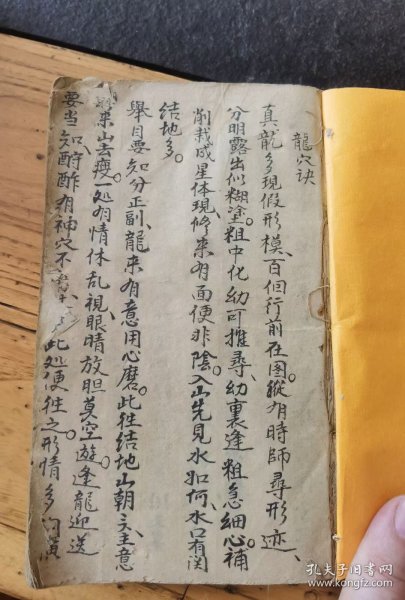 龍穴訣
真龍多現假形模、百個行前在图、縱有時師尋形迹、
分明露出似糊塗。粗中化幼可推尋、幼裏逢粗急細心。補
削裁成星体現、修來有面便非陰。入山先見水如何、水口有関
結地多。
舉目要知分正副、龍來有意用心磨。此往結地山朝、主意
來山去瘦。一処有情休乱視、眼睛放胆莫空遊。逢龍迎送
要当知、酧酢有神穴不 此処便往之形情多
孔夫子旧书网
www.kongfz.com